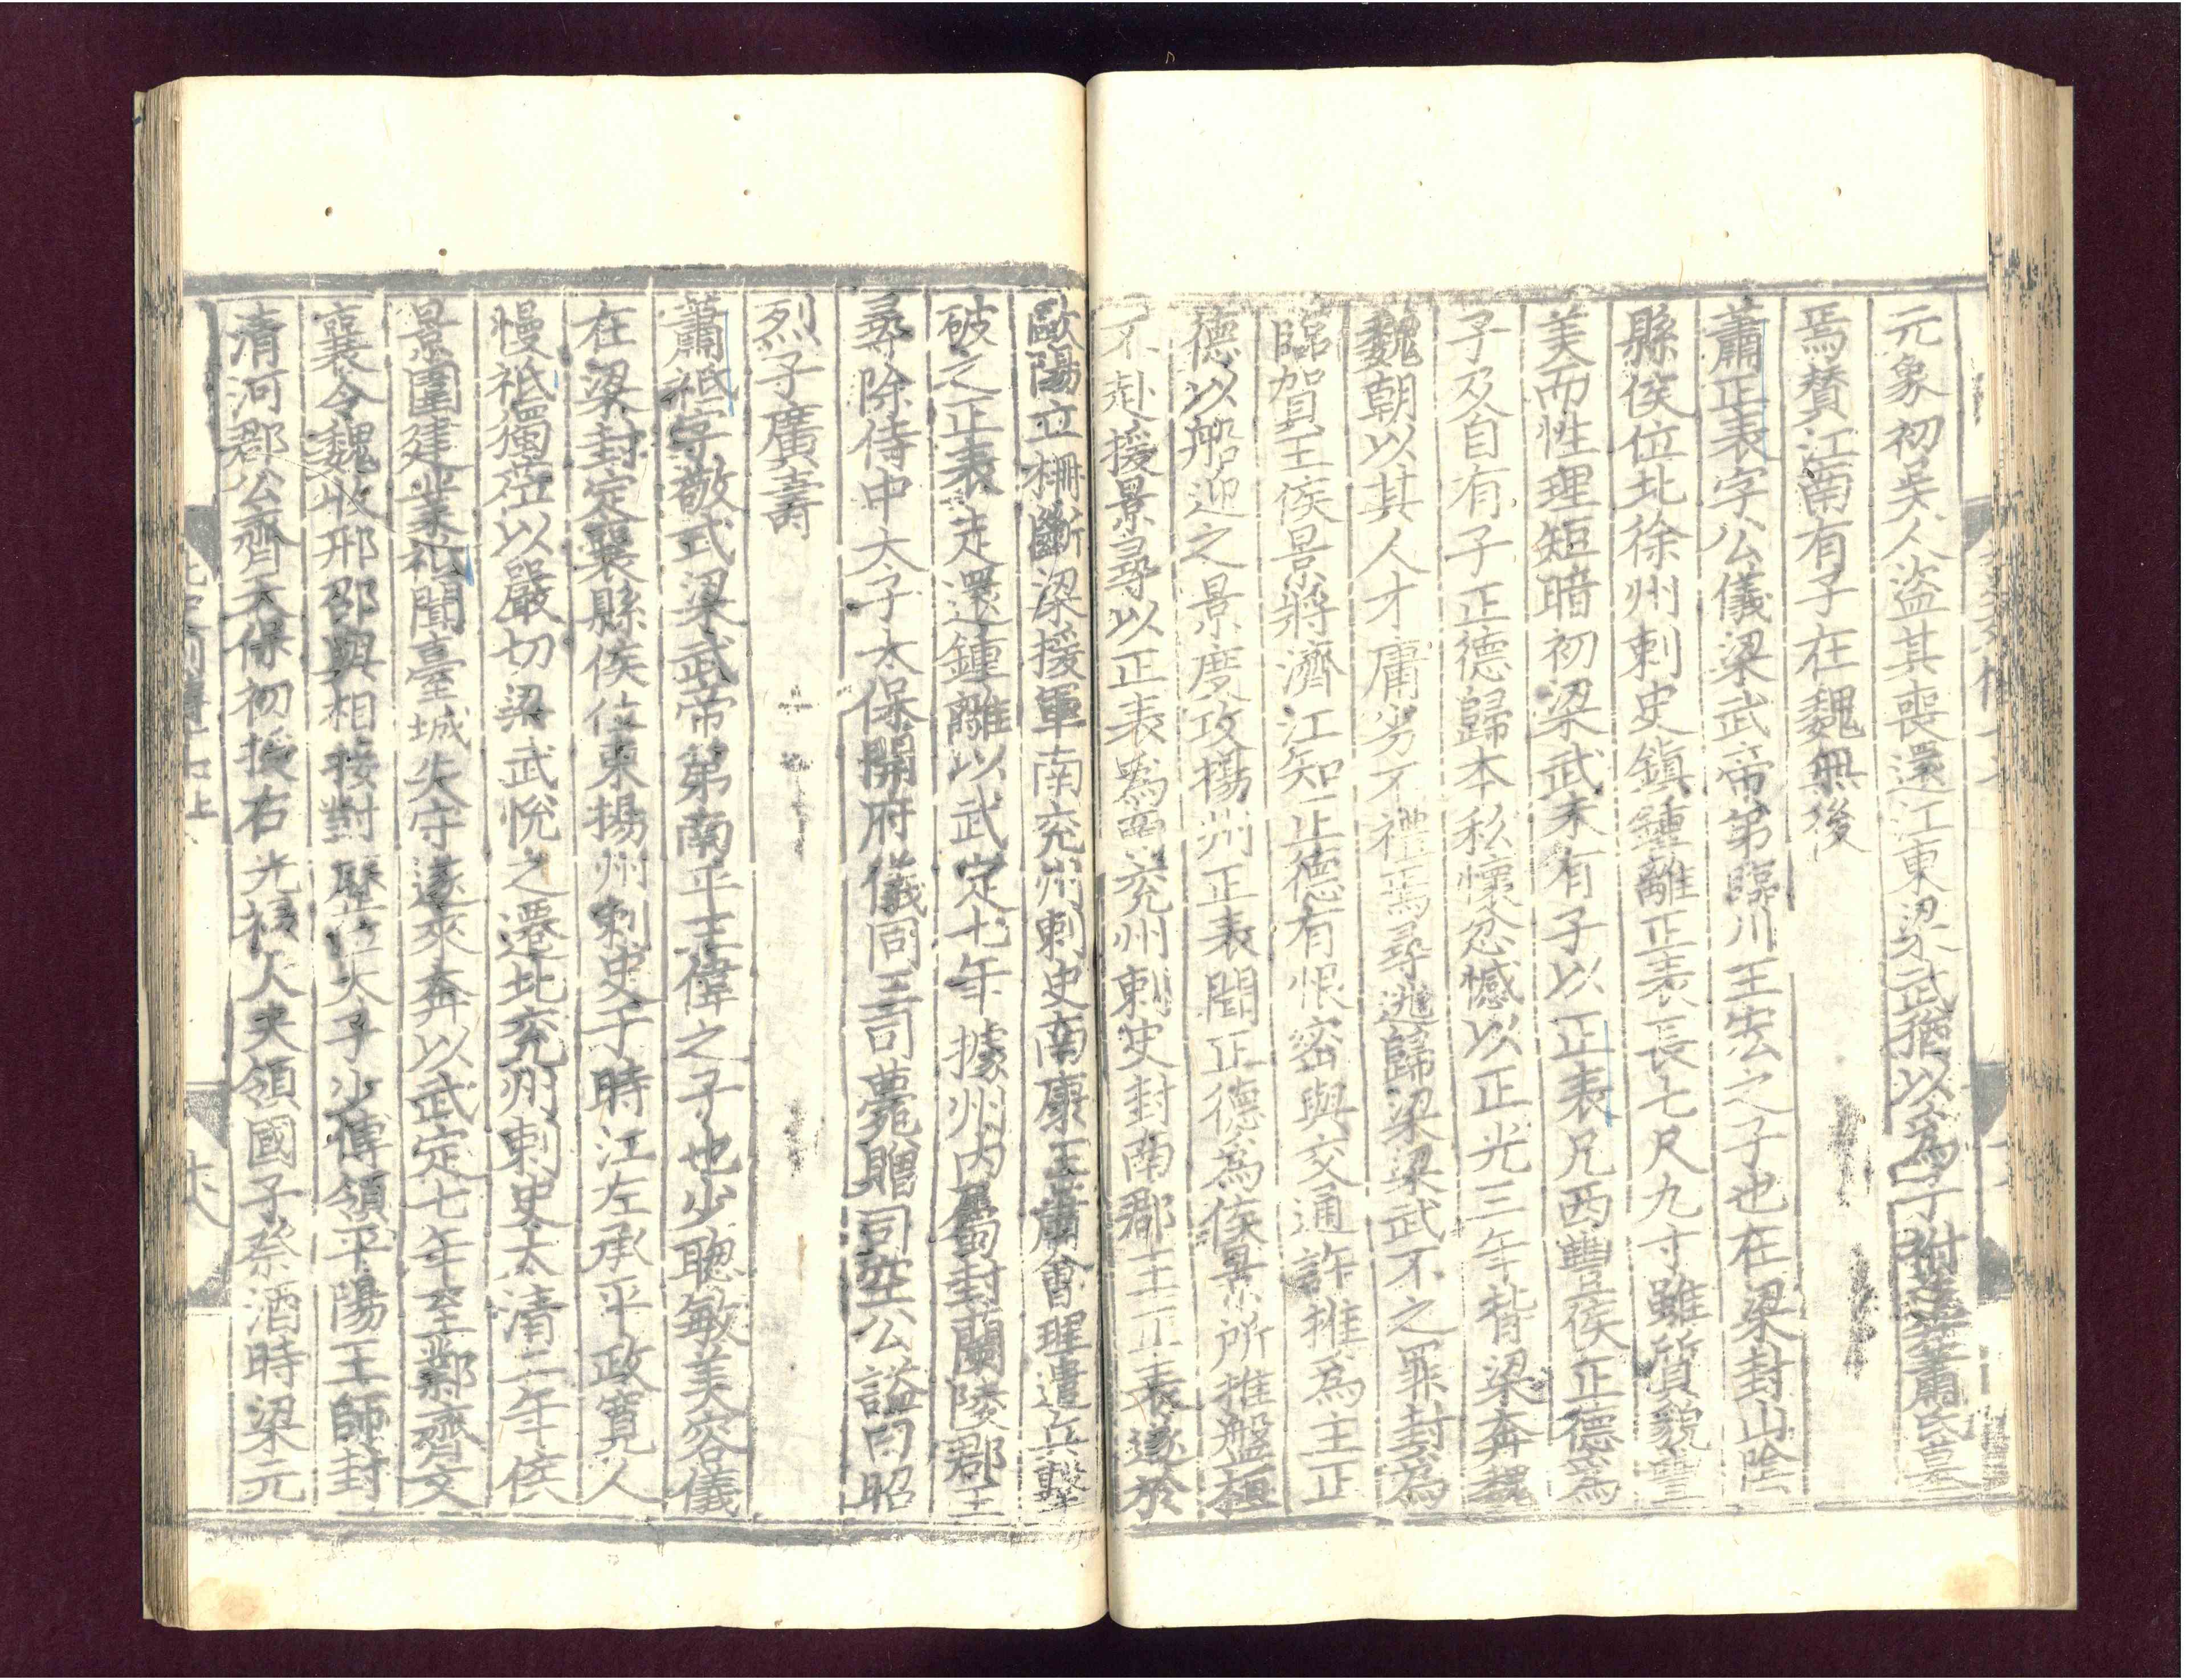 元象初吳人盜其喪還江東梁武猶以爲子祔葬蕭氏墓
焉贊江南有子在魏無後
蕭正表字公儀梁武帝弟臨川王宏之子也在梁封山陰
縣侯位北徐州刺史鎮鍾離正表長七尺九寸雖質貌豐
美而性理短暗初梁武未有子以正表兄西豐侯正德爲
子及自有子正德歸本私懷忿憾以正光三年背梁奔魏
魏朝以其人才庸劣不禮焉尋逃歸梁梁武不之罪封爲
臨賀王侯景將濟江知正德有恨密與交通許推爲主正
德以船迎之景度攻揚州正表聞正德爲侯景所推盤桓
不赴援景尋以正表爲南兖州刺史封南郡王正表遂於
歐陽立柵斷梁援軍南兖州刺史南康王蕭會理遣兵擊
破之正表走還鍾離以武定七年據州內屬封蘭陵郡王
尋除侍中太子太保開府儀同三司薨贈司空公諡曰昭
烈子廣壽
蕭祗字敬式梁武帝弟南平王偉之子也少聰敏美容儀
在梁封定襄縣侯位東揚州刺史于時江左承平政寬人
慢祗獨莅以嚴切梁武悅之遷北兖州刺史太清二年侯
景圍建業祗聞臺城失守遂來奔以武定七年至鄴齊文
襄令魏收邢邵與相接對歷位太子少傅領平陽王師封
清河郡公齊天保初授右光祿大夫領國子祭酒時梁元